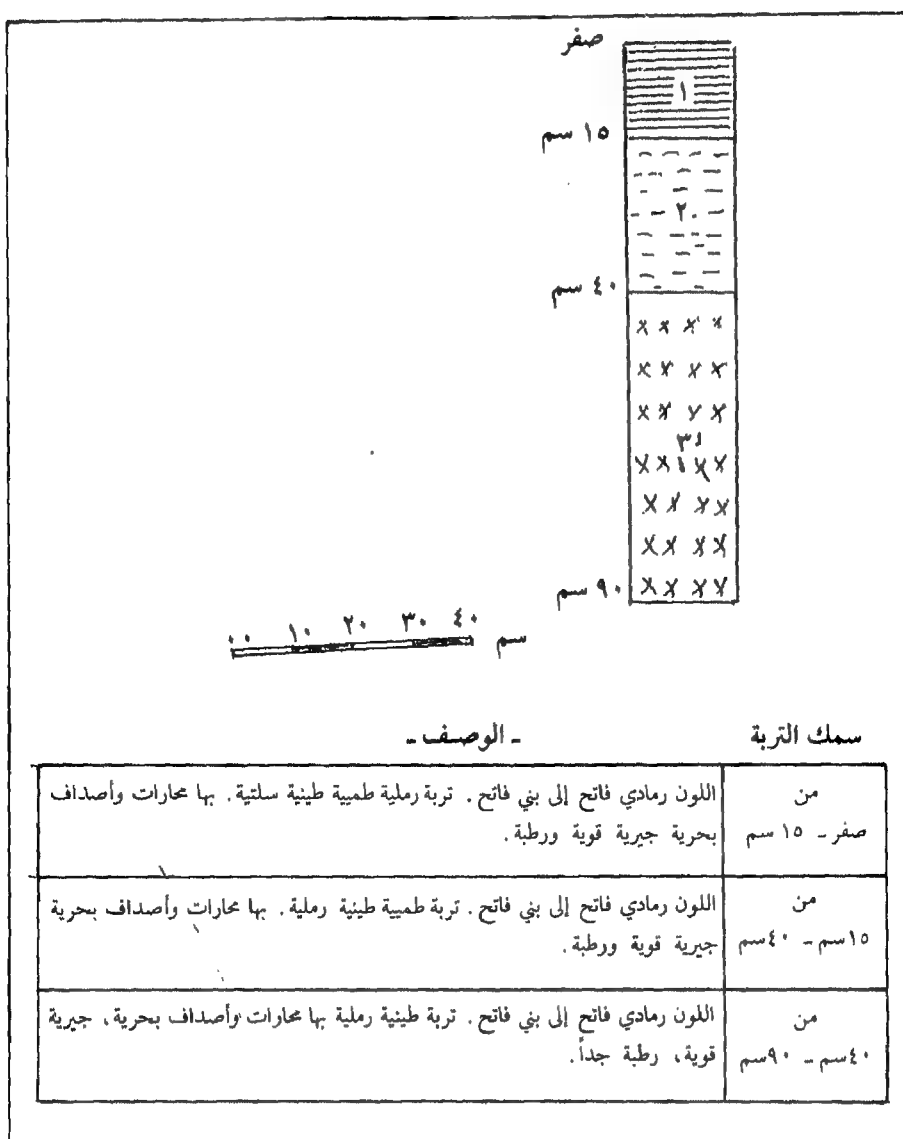 صفر
١
١٥ سم
٢
٤٠ سم
٣
٩٠ سم
٠٠ ١٠ ٢٠ ٣٠ ٤٠ سم
سمك التربة - الوصف -
من
صفر - ١٥ سم
اللون رمادي فاتح إلى بني فاتح. تربة رملية طميية طينية سلتية. بها محارات وأصداف
بحرية جيرية قوية ورطبة.
من
١٥سم - ٤٠سم
اللون رمادي فاتح إلى بني فاتح. تربة طميية طينية رملية. بها محارات وأصداف بحرية
جيرية قوية ورطبة.
من
٤٠سم - ٩٠سم
اللون رمادي فاتح إلى بني فاتح. تربة طينية رملية بها محارات وأصداف بحرية، جيرية
قوية، رطبة جداً.